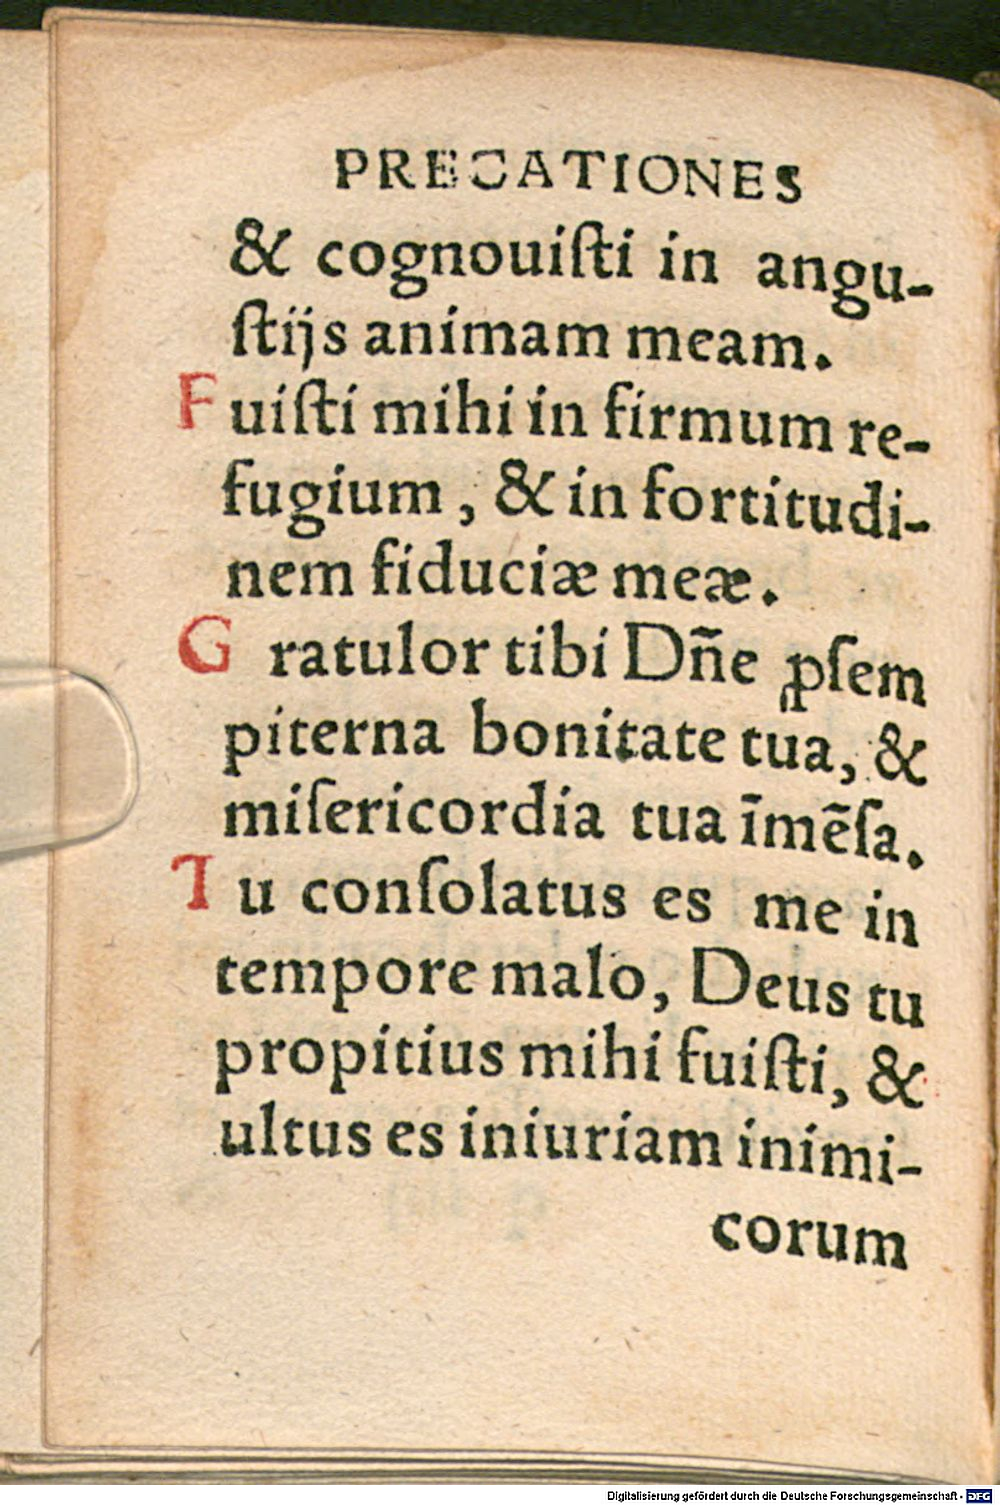 PRECATIONES
& cognouiſti in angu-
ſtijs animam meam.
Fuiſti mihi in firmum re-
fugium, & in fortitudi-
nem fiduciæ meæ.
Gratulor tibi Dñe ꝓſem
piterna bonitate tua, &
miſericordia tua īmēſa.
Tu conſolatus es me in
tempore malo, Deus tu
propitius mihi fuiſti, &
ultus es iniuriam inimi-
corum
Digitalisierung gefördert durch die Deutsche Forschungsgemeinschaft - DFG